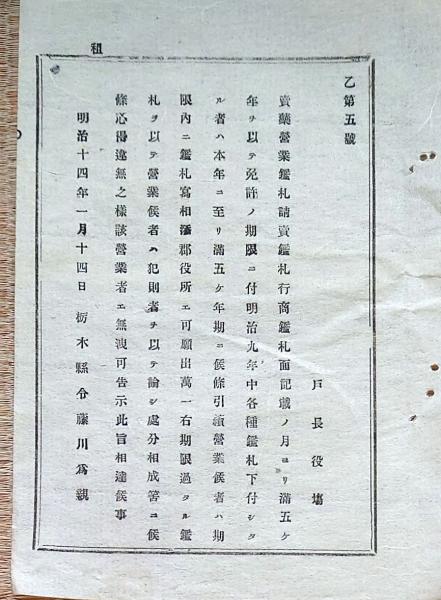 乙第五號
戸長役塲
賣藥營業鑑札請賣鑑札行商鑑札面記載ノ月ヨリ滿五ケ
年ヲ以テ免許ノ期限ニ付明治九年中各種鑑札下付シタ
ル者ハ本年ニ至リ滿五ケ年期ニ候條引續營業候者ハ期
限內ニ鑑札寫相添郡役所エ可願出萬一右期限過タル鑑
札ヲ以テ營業候者ハ犯則者ヲ以テ論シ處分相成筈ニ候
條心得違無之樣該營業者エ無洩可告示此旨相達候事
明治十四年一月十四日 栃木縣令藤川爲親
租